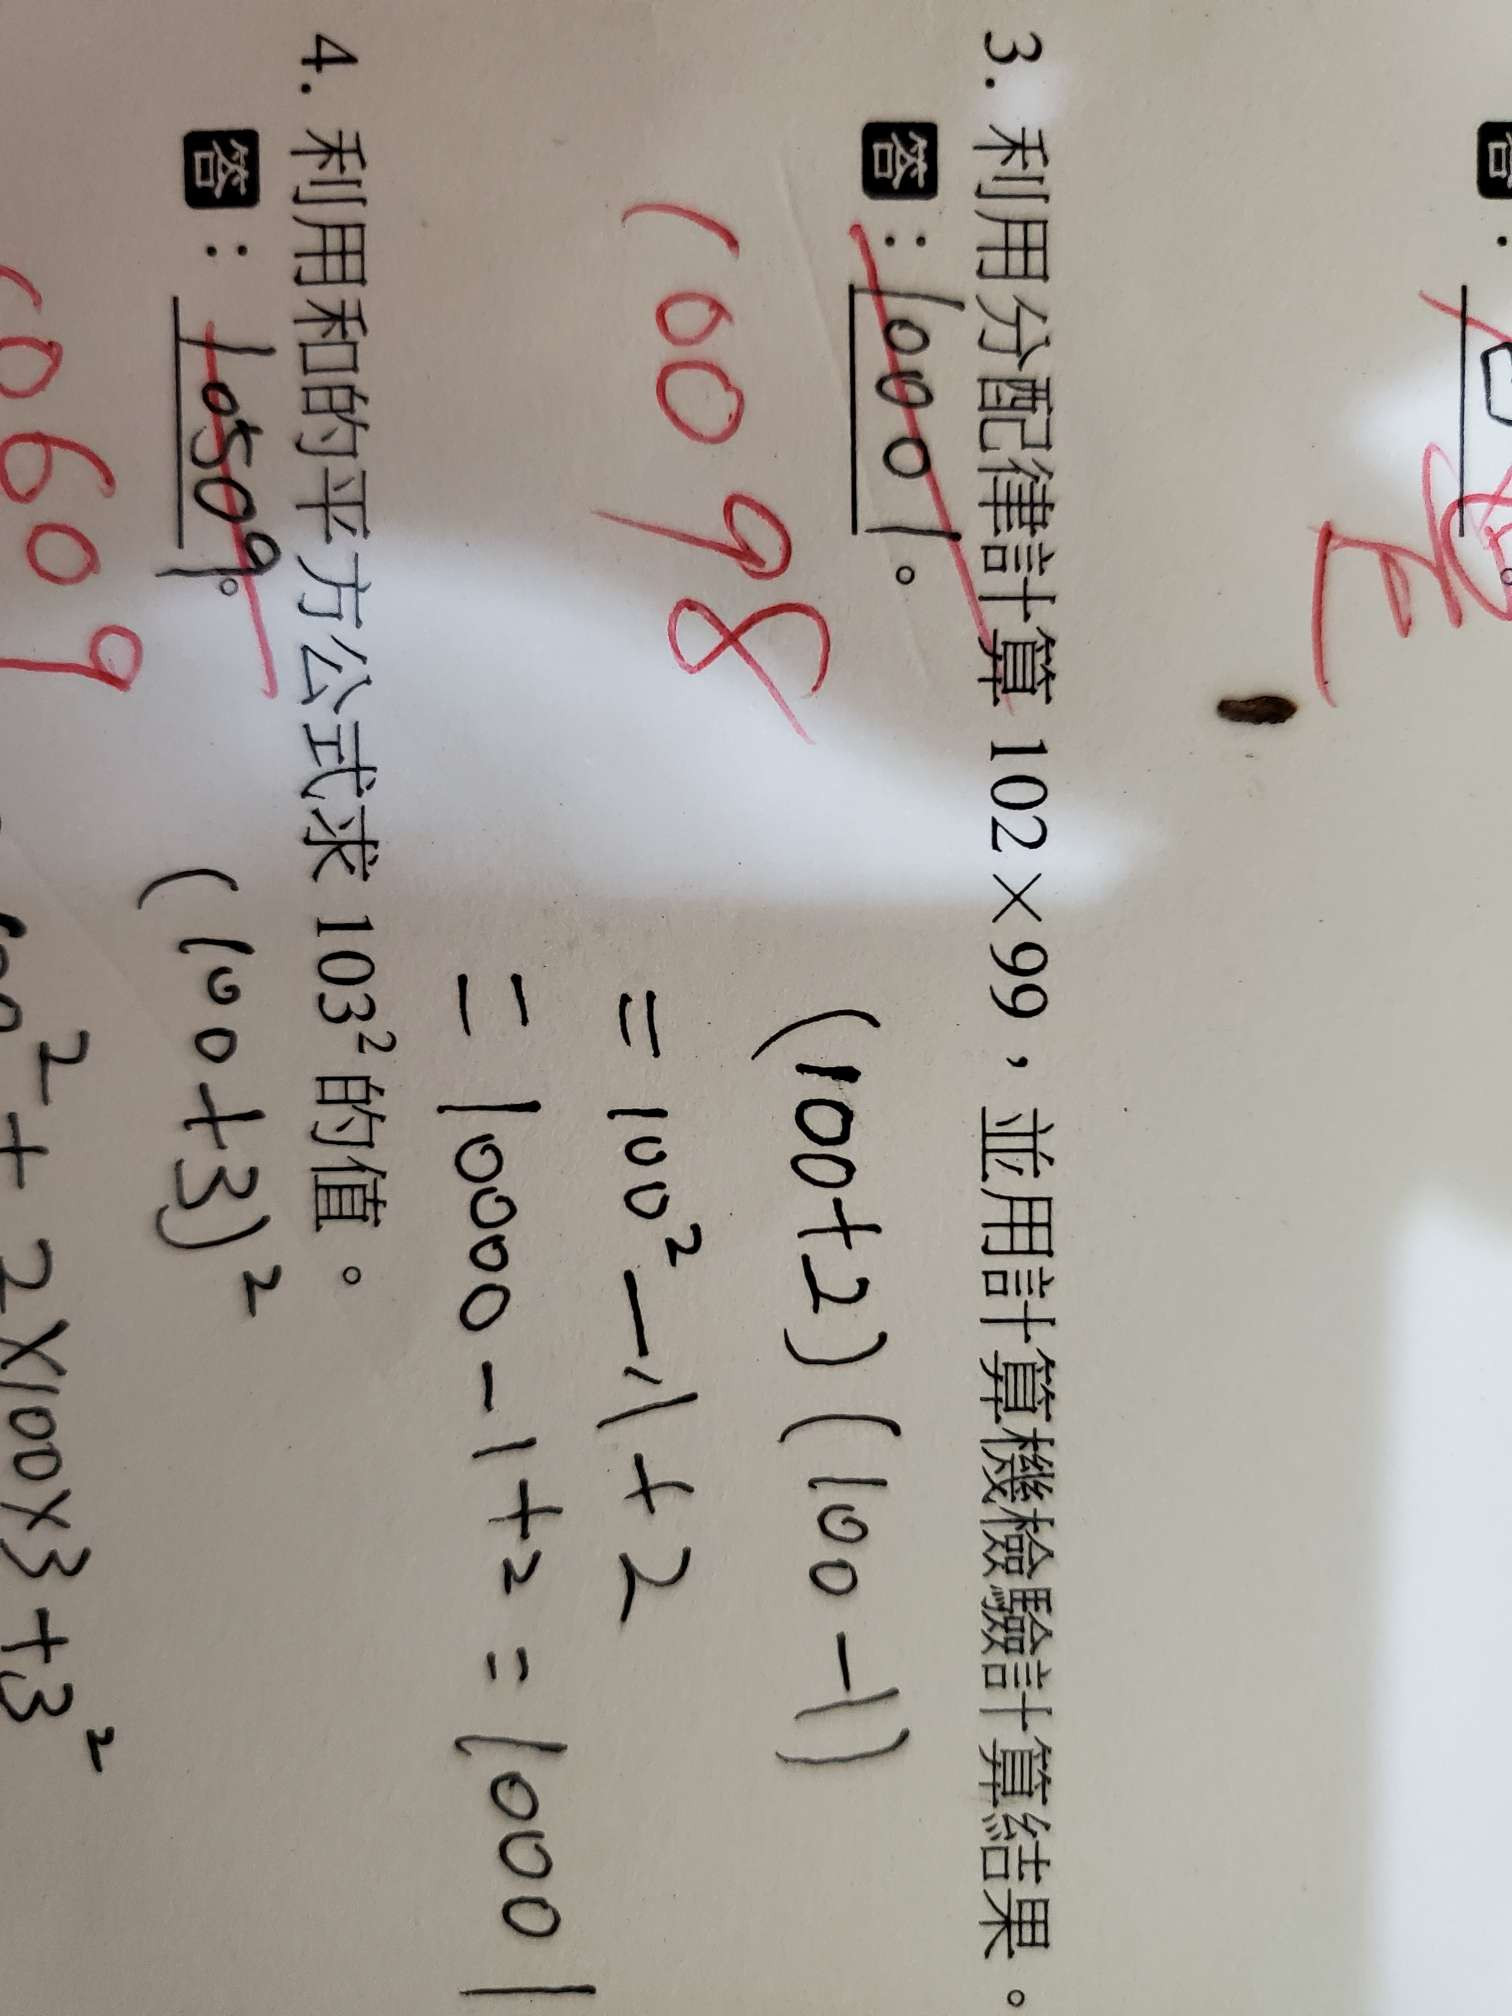 3. 利用分配律計算 102×99，並用計算機檢驗計算結果。
答：10001。
10098
(100+2)(100-1)
=100²-1+2
=10000-1+2=10001
4. 利用和的平方公式求 103² 的值。
答：10509。
10609
(100+3)²
100²+2×100×3+3²